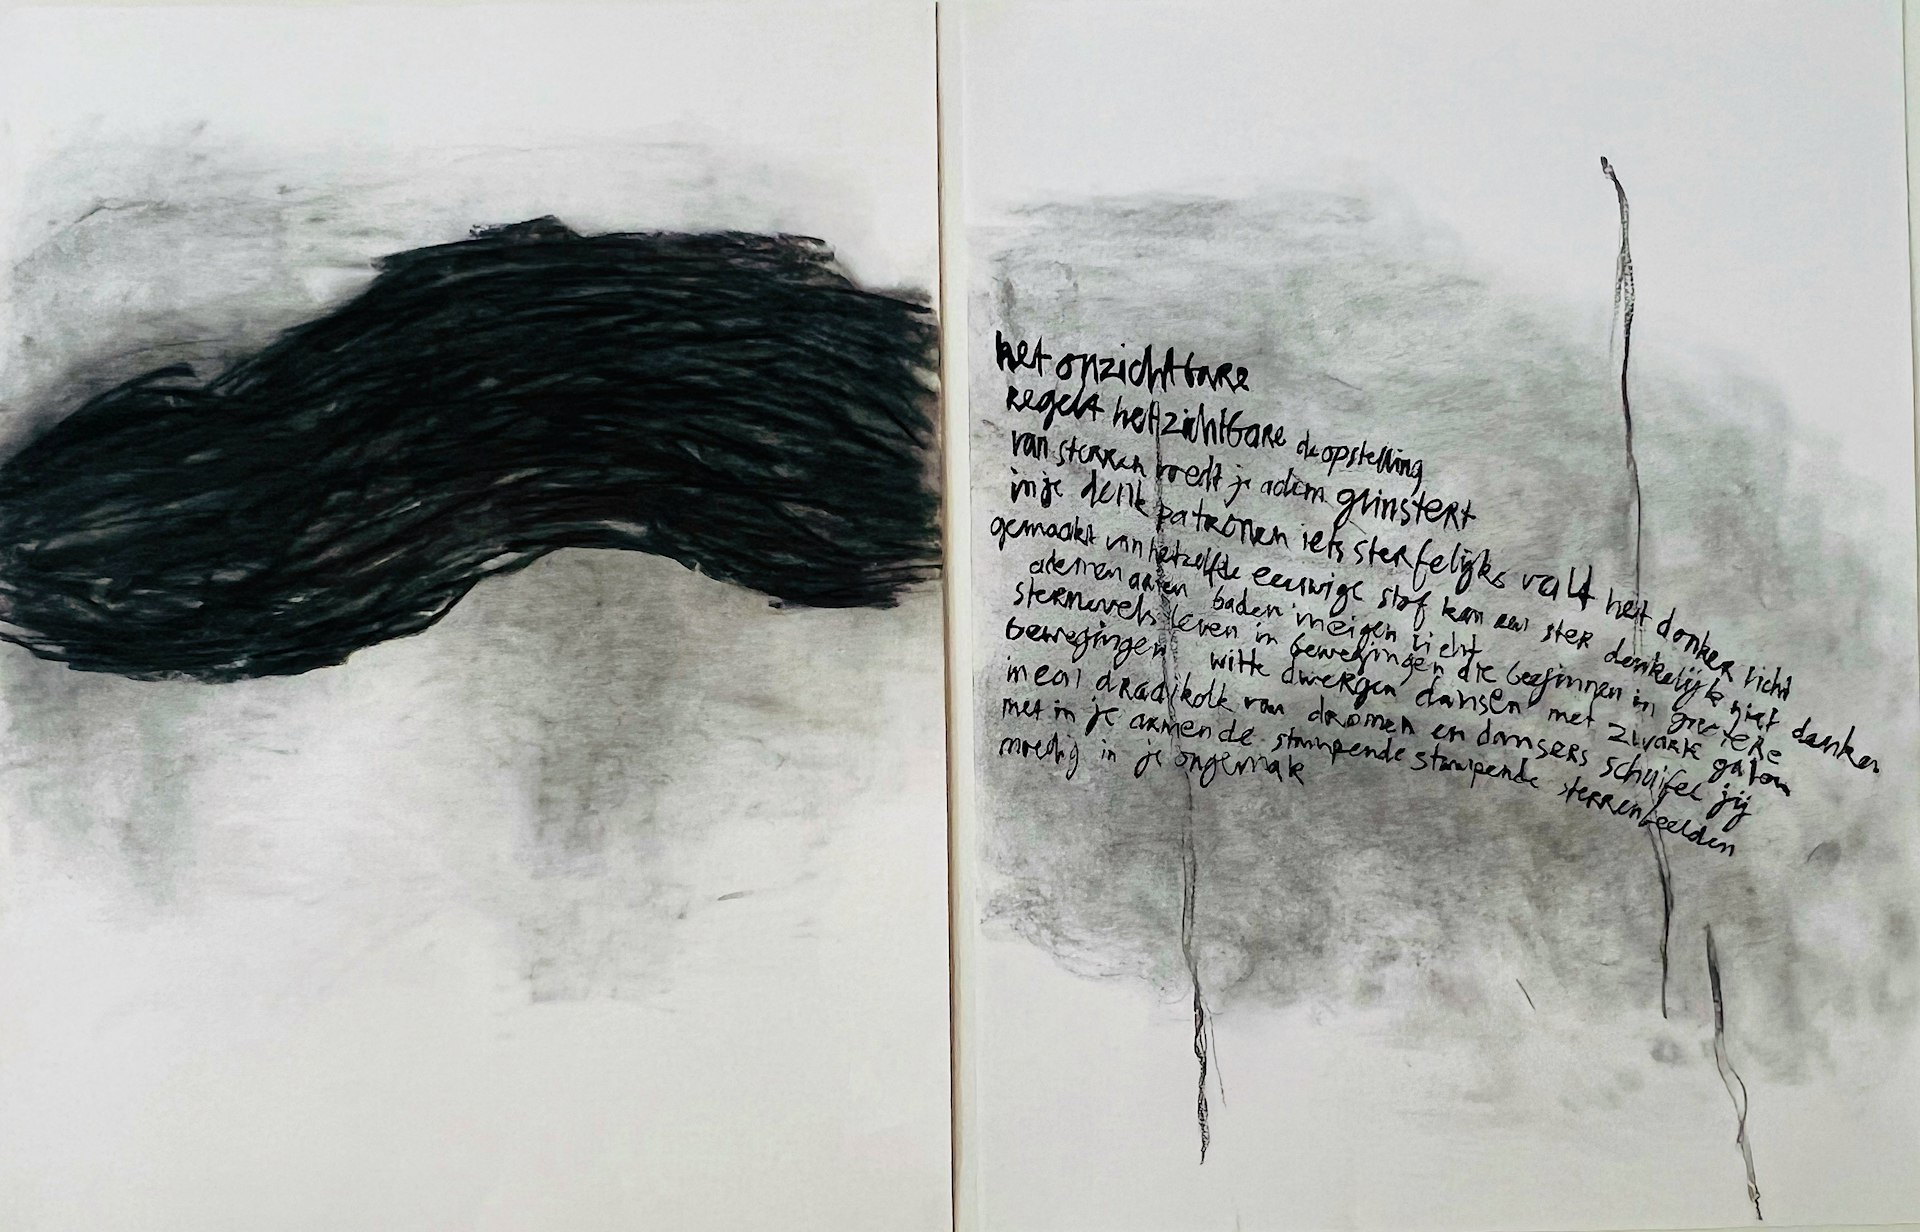 het onzichtbare
regelt het zichtbare de opstelling
van sterren voedt je adem glinstert
in je denkpatronen iets sterfelijks valt het donker licht
gemaakt van hetzelfde eeuwige stof kan een ster denkelijk niet denken
ademen armen baden in eigen licht
sternevels leven in bewegingen die beginnen in grotere
bewegingen witte dwergen dansen met zwarte gaten
in een draaikolk van dromen en dansers schuifel jij
met in je armen de stampende stampende sterrenbeelden
moedig in je ongemak